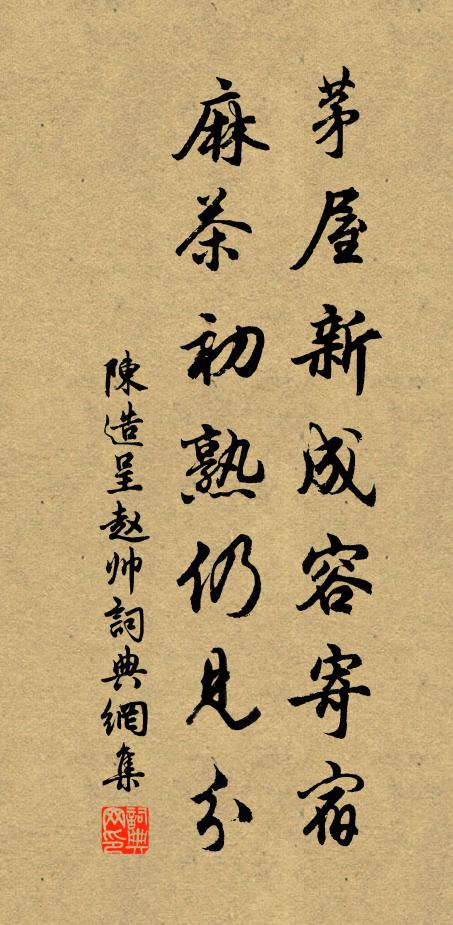 茅屋新成容寄宿
麻茶初熟仍見分
陳造呈赵帅詞典網集
詞典网印